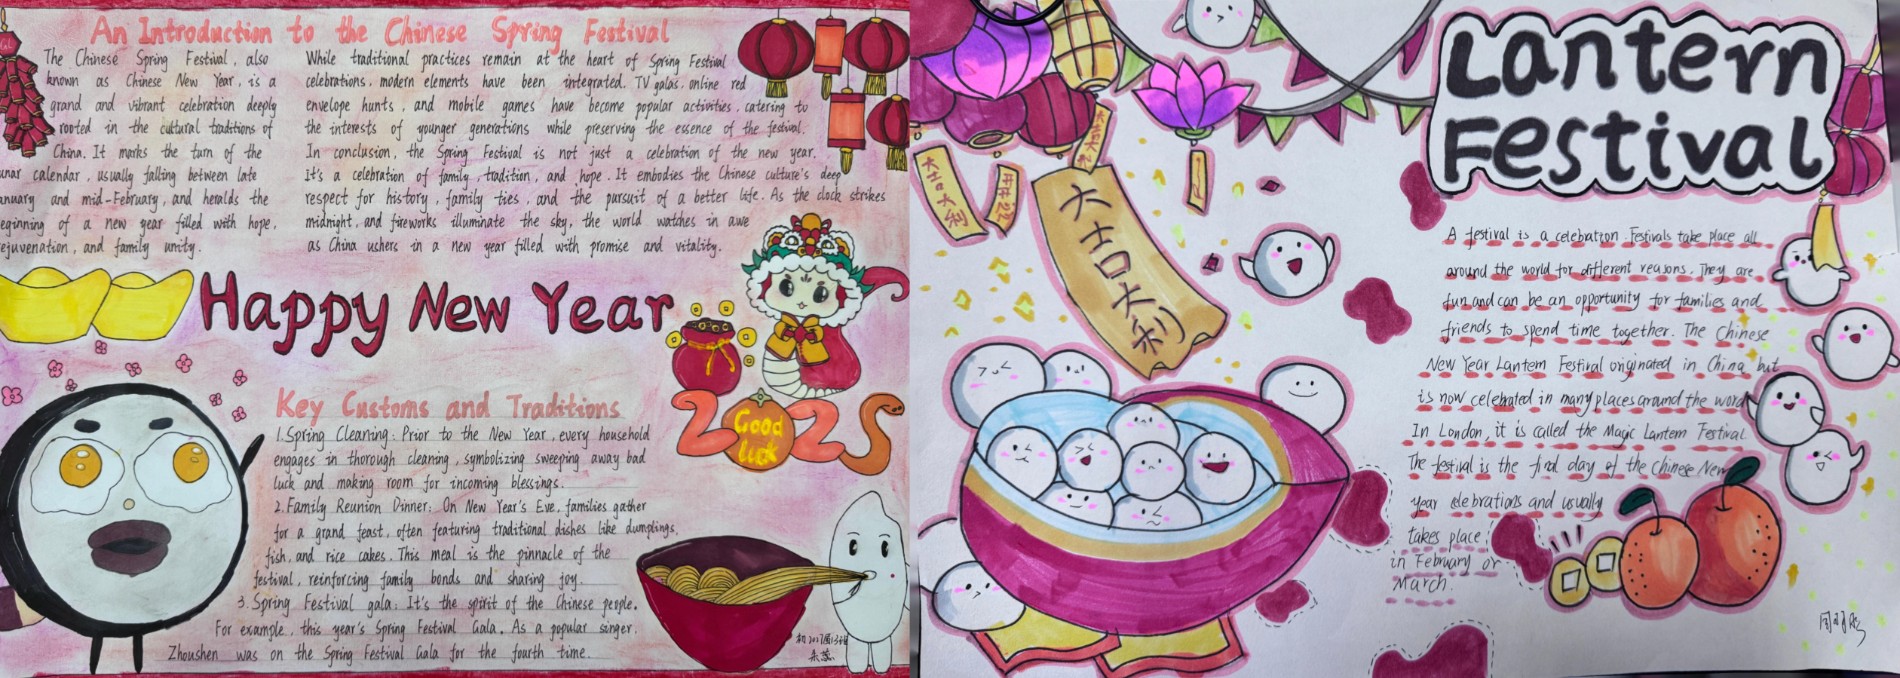 An Introduction to the Chinese Spring Festival
The Chinese Spring Festival, also
known as Chinese New Year, is a
grand and vibrant celebration deeply
rooted in the cultural traditions of
China. It marks the turn of the
unar calendar, usually falling between late
anuary and mid-February, and heralds the
eginning of a new year filled with hope,
ejuvenation, and family unity.
While traditional practices remain at the heart of Spring Festival
celebrations, modern elements have been integrated. TV galas, online red
envelope hunts, and mobile games have become popular activities, catering to
the interests of younger generations while preserving the essence of the festival.
In conclusion, the Spring Festival is not just a celebration of the new year.
It's a celebration of family, tradition, and hope. It embodies the Chinese culture's deep
respect for history, family ties, and the pursuit of a better life. As the clock strikes
midnight, and fireworks illuminate the sky, the world watches in awe
as China ushers in a new year filled with promise and vitality.
Happy New Year
2025
Good
luck
Key Customs and Traditions
1.Spring Cleaning: Prior to the New Year, every household
engages in thorough cleaning, symbolizing sweeping away bad
luck and making room for incoming blessings.
2.Family Reunion Dinner: On New Year's Eve, families gather
for a grand feast, often featuring traditional dishes like dumplings,
fish, and rice cakes. This meal is the pinnacle of the
festival, reinforcing family bonds and sharing joy.
3.Spring Festival gala: It's the spirit of the Chinese people.
For example, this year's Spring Festival Gala. As a popular singer,
Zhoushen was on the Spring Festival Gala for the fourth time.
Lantern
Festival
大吉大利
大吉大利
大吉大利
A festival is a celebration. Festivals take place all
around the world for different reasons. They are
fun and can be an opportunity for families and
friends to spend time together. The Chinese
New Year Lantern Festival originated in China but
is now celebrated in many places around the word
In London, it is called the Magic Lantern Festival
The festival is the final day of the Chinese New
year elebrations and usually
takes place
in February or
March.